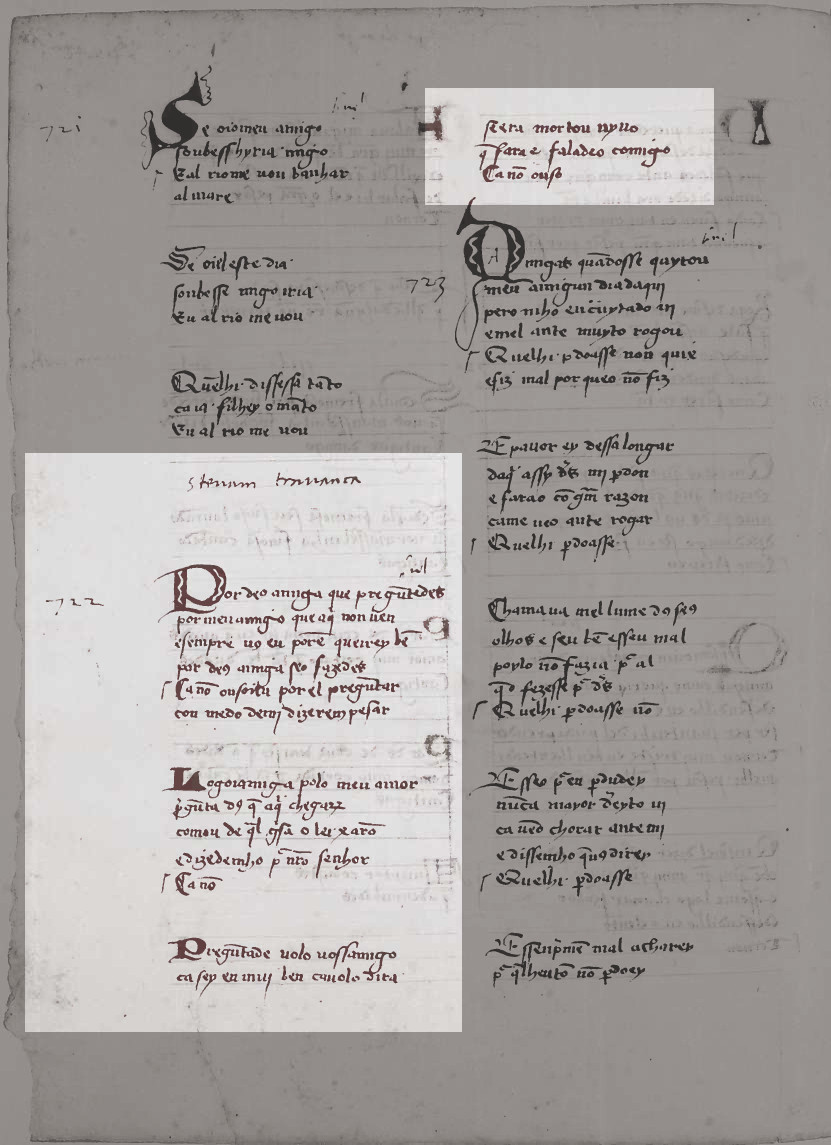 721
Se oiomeu amigo
soubessh yria migo
Eal riome uou banhar
al mare
Se oieleste dia
soubesse migo iria
Eu al rio me uou
Quē lhi dissessa tāto
ca ia filhey o māto
Eu al rio me uou
steuam trauanca
722
Por deo amiga que preguntedes
por meu amigo que aq̄ non uen
esempre uꝯ eu porē querrey bē
por deꝯ amiga seo fazedes
Ca nō ouso eu por el preguntar
con medo demj dizerem pesar
Logoiamiga polo meu amor
p̄gūta dꝯ q̄ aq̄ chegar
comou de q̄l
edizedemho p̄ nr̄o senhor
Ca nō
Preguntade uolo uossamigo
ca sey en mui ben ca uolo dira
se era mortou uyuo
q̄ faz e faladeo comigo
Ca nō ouso
723
Amigas quādosse quytou
meu amigun dia daqui
pero mho eu cuytado ui
emel ante muyto rogou
Quelhi ꝑdoasse non quix
efiz mal por queo nō fiz
E pauor ey dessalongar
daq̄ assy ds̄ mi ꝑdon
e farao cō grā razon
came ueo ante rogar
Quelhi ꝑdoasse
Chamaua mel lume dꝯ seꝯ
olhos e seu bē esseu mal
poylo nō fazia p̄ al
q̄o fezesse p̄ ds̄
Quelhi ꝑdoasse nō
Esseo p̄ en ꝑdudey
nūca mayor dēyto ui
ca ueō chorar ante mi
edissemho quꝯ direy
Quelhi ꝑdoasse
Essenp̄mē mal acharey
p̄ q̄lhentō nō ꝑdoey